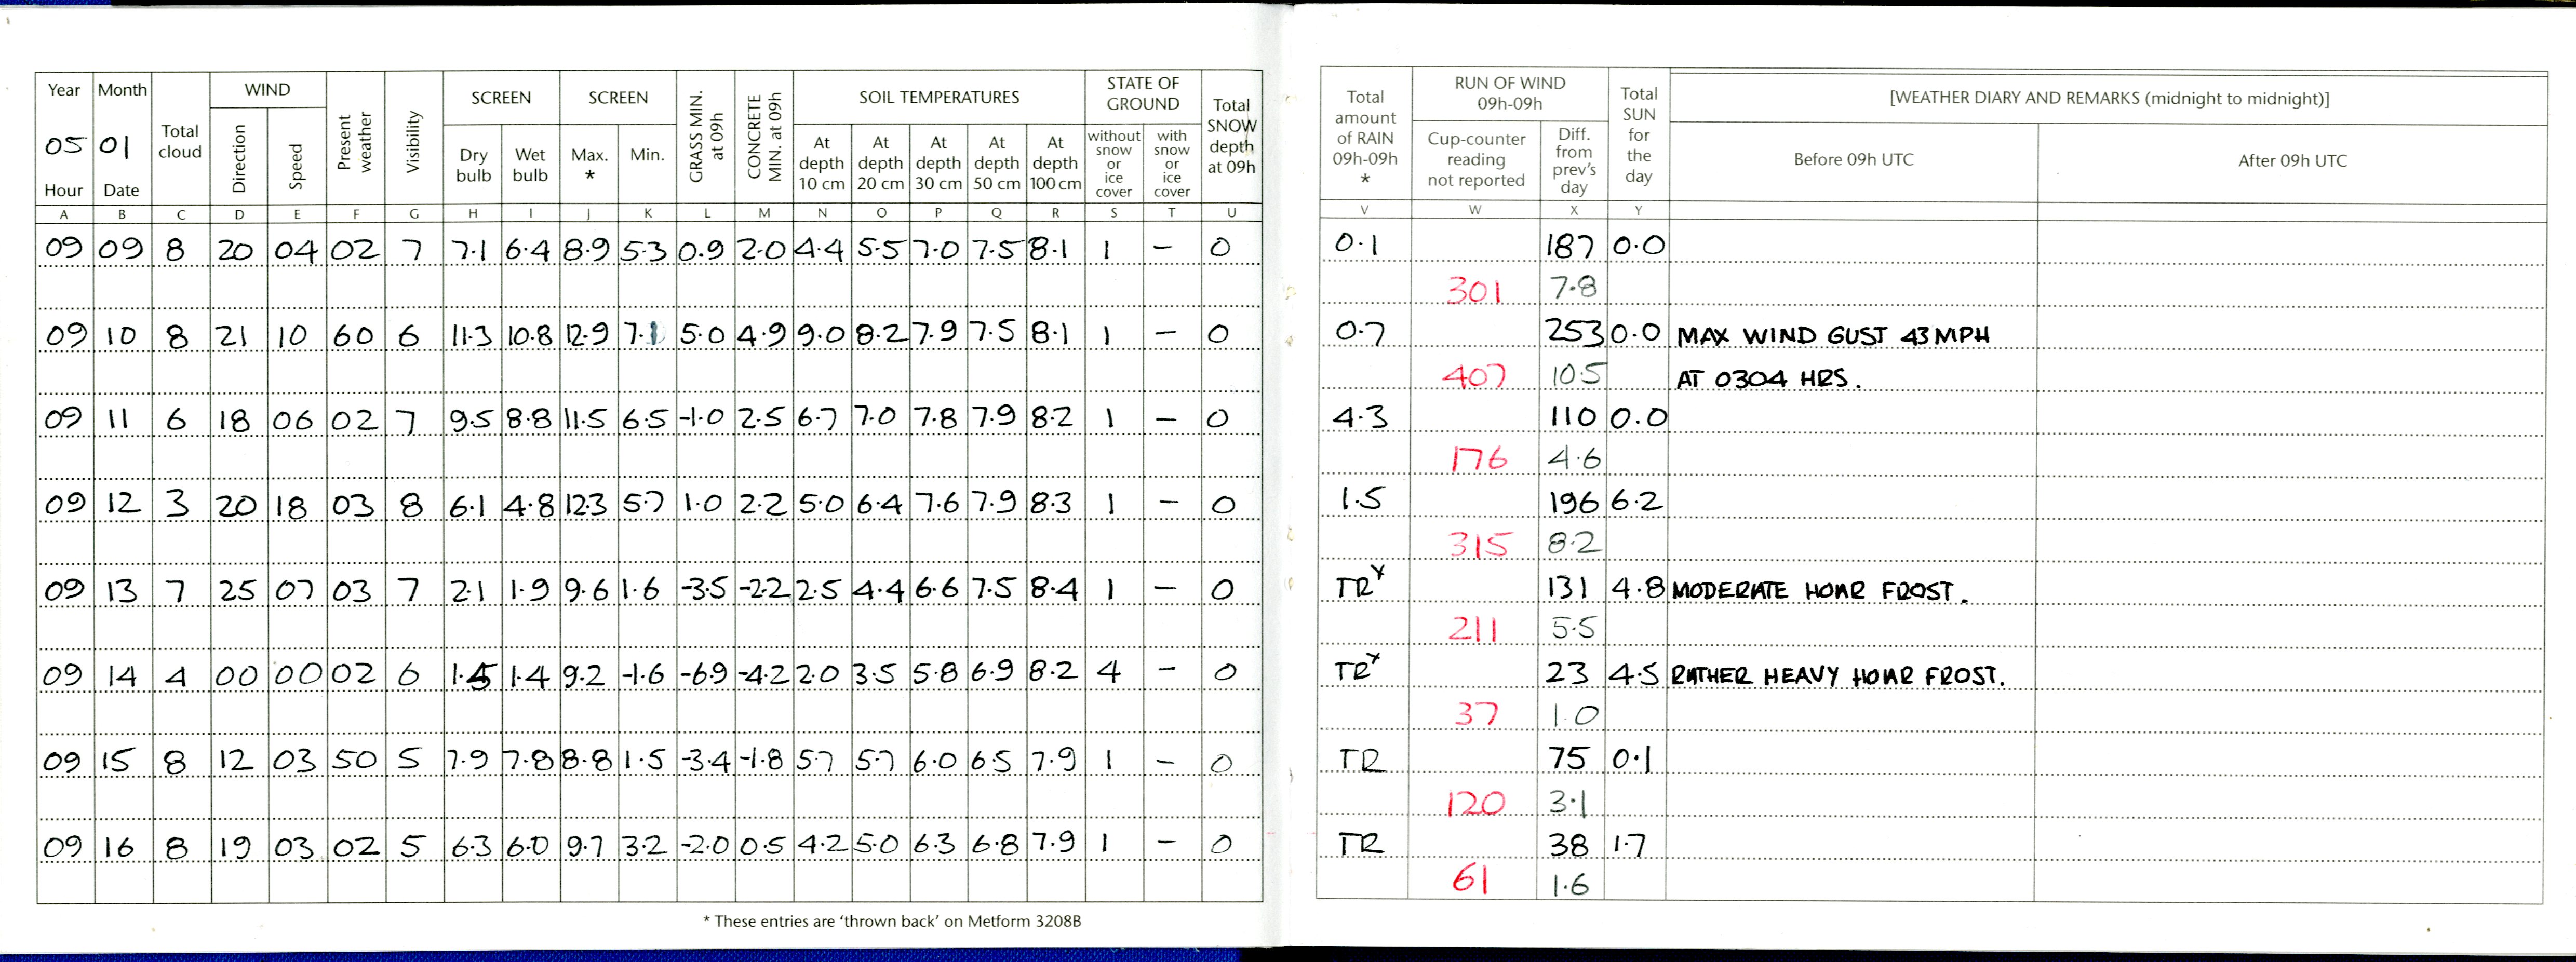 Year Month Total cloud WIND Present weather Visibility SCREEN SCREEN GRASS MIN. at 09h CONCRETE MIN. at 09h SOIL TEMPERATURES STATE OF GROUND Total SNOW depth at 09h
05 01 Direction Speed Dry bulb Wet bulb Max. * Min. At depth 10 cm At depth 20 cm At depth 30 cm At depth 50 cm At depth 100 cm without snow or ice cover with snow or ice cover
Hour Date
A B C D E F G H I J K L M N O P Q R S T U
09 09 8 20 04 02 7 7.1 6.4 8.9 5.3 0.9 2.0 4.4 5.5 7.0 7.5 8.1 1 – 0
09 10 8 21 10 60 6 11.3 10.8 12.9 7.1 5.0 4.9 9.0 8.2 7.9 7.5 8.1 1 – 0
09 11 6 18 06 02 7 9.5 8.8 11.5 6.5 -1.0 2.5 6.7 7.0 7.8 7.9 8.2 1 – 0
09 12 3 20 18 03 8 6.1 4.8 12.3 5.7 1.0 2.2 5.0 6.4 7.6 7.9 8.3 1 – 0
09 13 7 25 07 03 7 2.1 1.9 9.6 1.6 -3.5 -2.2 2.5 4.4 6.6 7.5 8.4 1 – 0
09 14 4 00 00 02 6 1.5 1.4 9.2 -1.6 -6.9 -4.2 2.0 3.5 5.8 6.9 8.2 4 – 0
09 15 8 12 03 50 5 7.9 7.8 8.8 1.5 -3.4 -1.8 5.7 5.7 6.0 6.5 7.9 1 – 0
09 16 8 19 03 02 5 6.3 6.0 9.7 3.2 -2.0 0.5 4.2 5.0 6.3 6.8 7.9 1 – 0
* These entries are ‘thrown back’ on Metform 3208B
Total amount of RAIN 09h-09h * RUN OF WIND 09h-09h Total SUN for the day [WEATHER DIARY AND REMARKS (midnight to midnight)]
Cup-counter reading not reported Diff. from prev's day Before 09h UTC After 09h UTC
V W X Y
0.1 187 0.0
301 7.8
0.7 253 0.0 MAX WIND GUST 43 MPH
407 10.5 AT 0304 HRS.
4.3 110 0.0
176 4.6
1.5 196 6.2
315 8.2
TR* 131 4.8 MODERATE HOAR FROST.
211 5.5
TR* 23 4.5 RATHER HEAVY HOAR FROST.
37 1.0
TR 75 0.1
120 3.1
TR 38 1.7
61 1.6